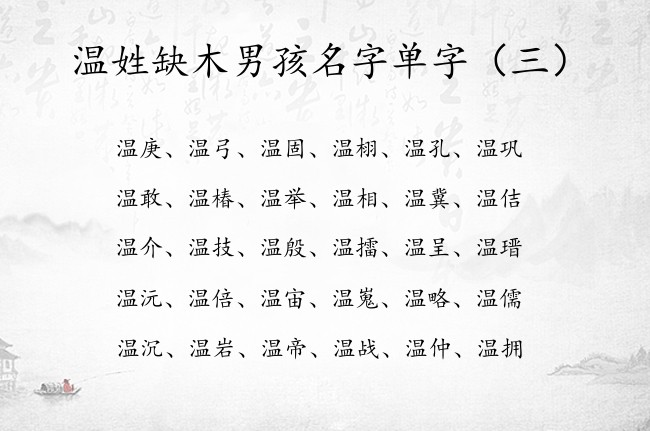 温姓缺木男孩名字单字（三）
温庚、温弓、温固、温栩、温孔、温巩
温敢、温椿、温举、温相、温冀、温佶
温介、温技、温殷、温擂、温呈、温瑨
温沅、温倍、温宙、温嵬、温略、温儒
温沉、温岩、温帝、温战、温仲、温拥